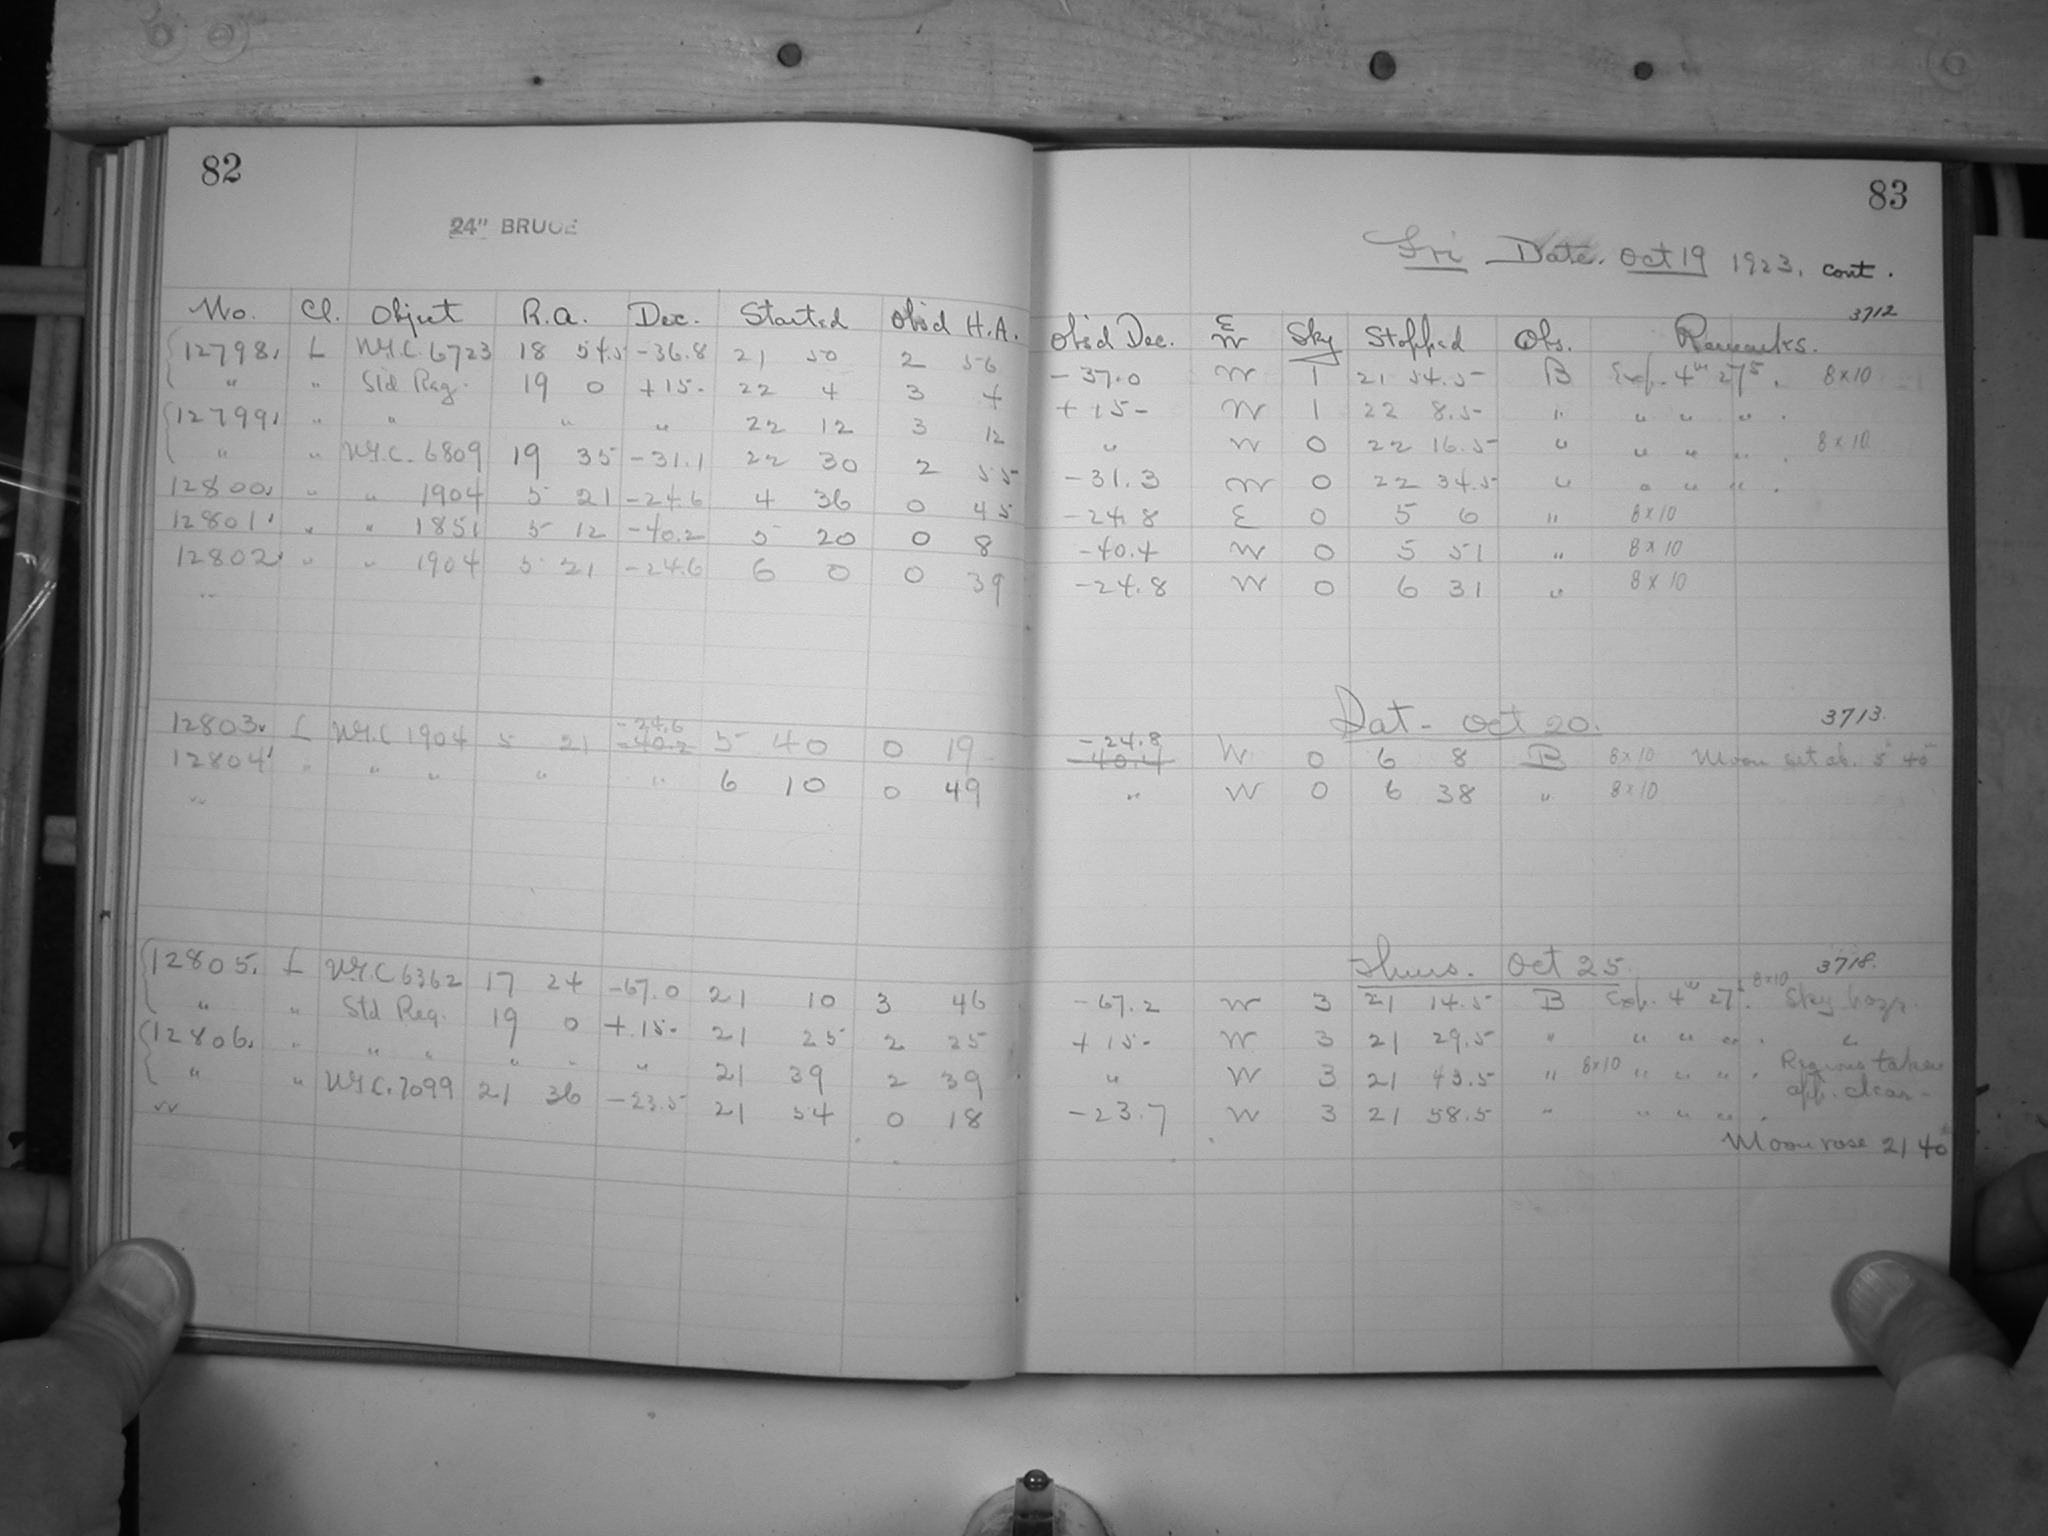 82
24" BRUCE
No. Cl. Object R.A. Dec. Started Obs'd H.A.
12798. L N.G.C. 6723 18 54.5 -36.8 21 50 2 56
" " Std Reg. 19 0 +15- 22 4 3 4
12799. " " " " 22 12 3 12
" " N.G.C. 6809 19 35 -31.1 22 30 2 55
12800. " " 1904 5 21 -24.6 4 36 0 45
12801. " " 1851 5 12 -40.2 5 20 0 8
12802. " " 1904 5 21 -24.6 6 0 0 39
-24.6
12803. L N.G.C 1904 5 21 -40.2 5 40 0 19
12804 " " " " " 6 10 0 49
12805. L N.G.C 6362 17 24 -67.0 21 10 3 46
" " Std Reg. 19 0 +15- 21 25 2 25
12806. " " " " " " 21 39 2 39
" " N.G.C. 7099 21 36 -23.5 21 54 0 18
83
Fri Date. Oct 19 1923. cont.
3712
Obs'd Dec. E W Sky Stopped Obs. Remarks.
-37.0 W 1 21 54.5 B Exp. 4m 27s. 8x10
+15- W 1 22 8.5 " " " " .
" W 0 22 16.5 " " " " . 8x10
-31.3 W 0 22 34.5 " " " " .
-24.8 E 0 5 6 " 8x10
-40.4 W 0 5 51 " 8x10
-24.8 W 0 6 31 " 8x10
Sat- Oct 20. 3713.
-24.8
-40.4 W 0 6 8 B 8x10 Moon set ab. 5 40
" W 0 6 38 " 8x10
Thurs. Oct 25. 3718.
-67.2 W 3 21 14.5 B Exp. 4m 27s. 8x10 Sky hazy.
+15- W 3 21 29.5 " " " " . "
" W 3 21 43.5 " 8x10 " " " . Regions taken
app. clear-
-23.7 W 3 21 58.5 " " " " .
Moon rose 21 40